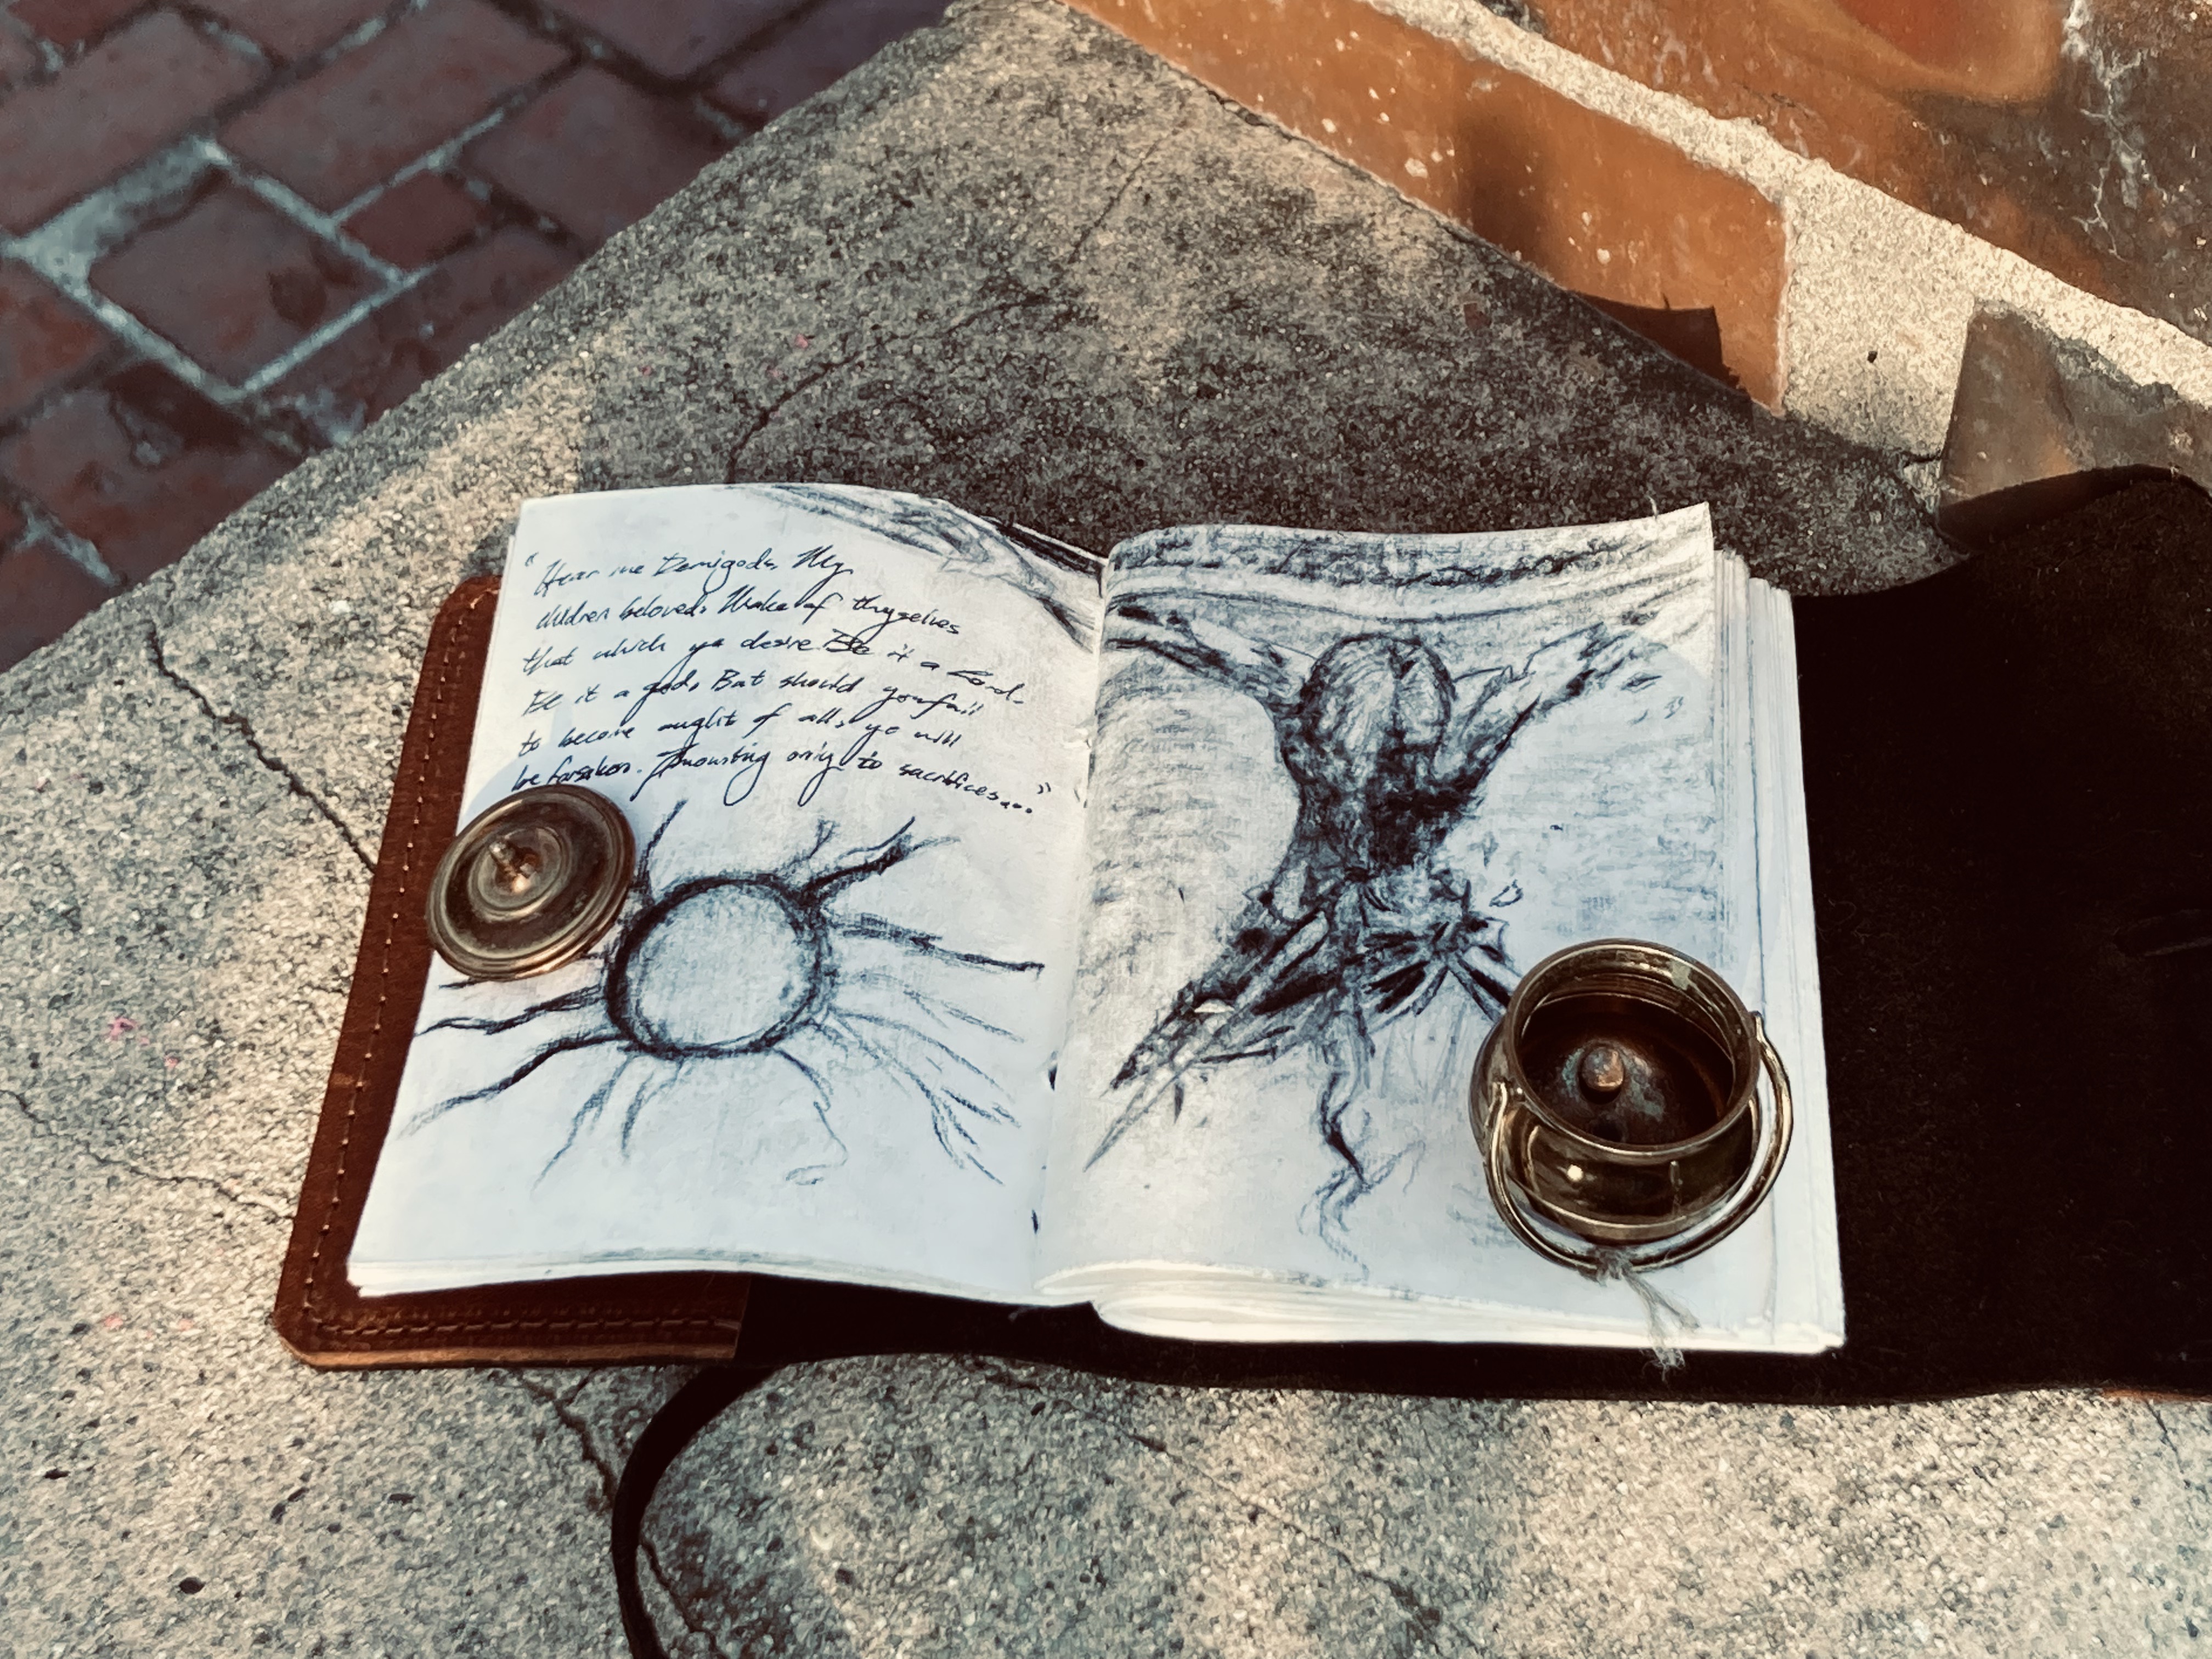 "Hear me Demigods, My
children beloved. Make of thyselves
that which ye desire. Be it a Lord.
Be it a god. But should you fail
to become aught of all, ye will
be forsaken. Amounting only to sacrifices..."